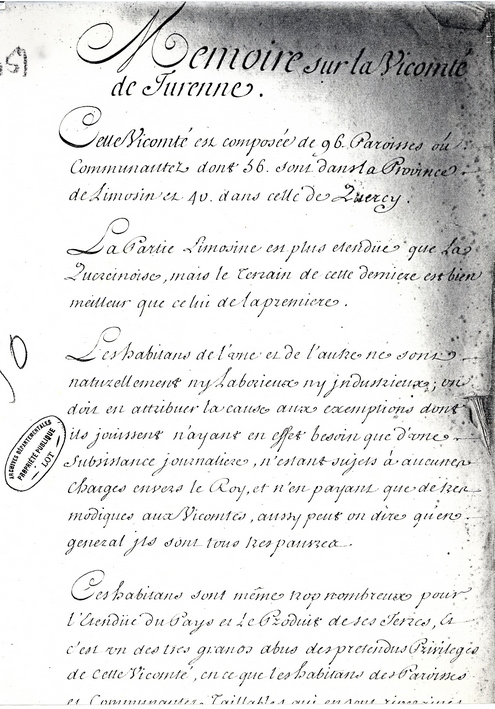 Memoire sur la Vicomté
de Turenne.
Cette Vicomté est composée de 96. Paroisses ou
Communautez dont 56. sont dans la Province
de Limosin et 40. dans celle de Quercy.
La Partie Limosine est plus etendüe que La
Quercinoise, mais le terrain de cette derniere est bien
meilleur que celui de la premiere.
Les habitans de l'vne et de l'autre ne sont
naturellement ny Laborieux ny jndustrieux; on
doit en attribuer la cause aux exemptions dont
ils jouissent n'ayant en effet besoin que d'vne
Subsistance journaliere, n'estant sujets à aucunes
Charges envers le Roy, et n'en payant que de tres
modiques aux Vicomtes, aussy peut on dire qu'en
general jls sont tous tres pauvres
Ces habitans sont même trop nombreux pour
l'Etendüe du Pays et Le Produit de ses Terres, Et
c'est vn des tres grands abus des pretendus Privileges
de Cette Vicomté, en ce que les habitans des Paroisses
et Communautez Taillables qui en sont
ARCHIVES DÉPARTEMENTALES
PROPRIÉTÉ PUBLIQUE
LOT